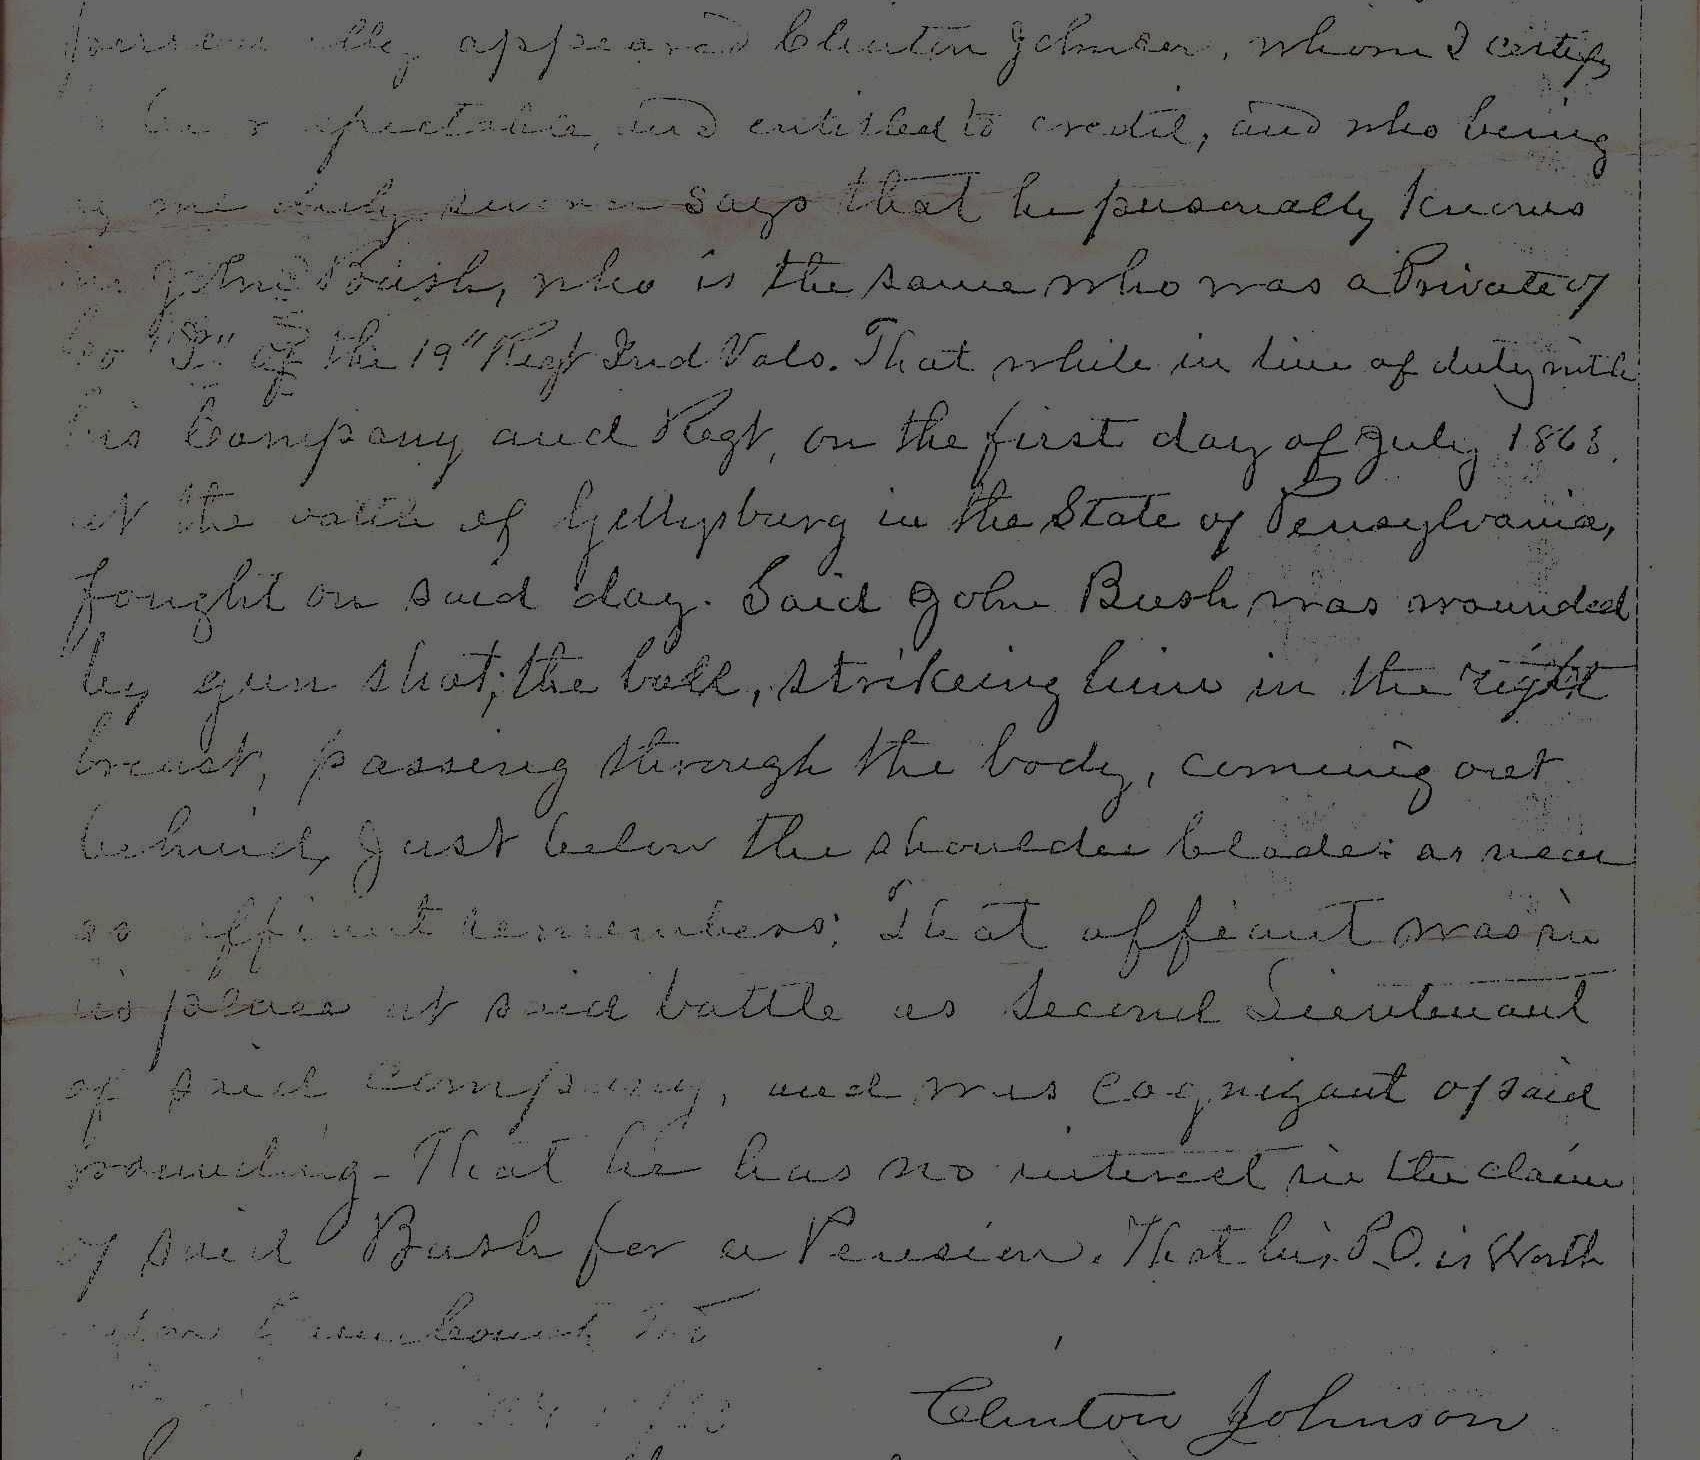 personally appeared Clinton Johnson, whom I certify
be respectable, and entitled to credit, and who being
by me duly sworn says that he personally knows
John Bush, who is the same who was a Private of
Co "F" of the 19" Regt Ind Vols. That while in line of duty with
his Company and Regt, on the first day of July 1863.
at the battle of Gettysburg in the State of Pensylvania,
fought on said day. Said John Bush was wounded
by gun shot; the ball, strikeing him in the right
breast, passing through the body, comeing out
behind, Just below the shoulder blade: as near
as affiant remembers; That affiant was in
his place at said battle as Second Lieutenant
of said Company, and was cognizant of said
wounding - That he has no interest in the claim
of said Bush for a Pension. That his P.O. is Worth
Clinton Johnson